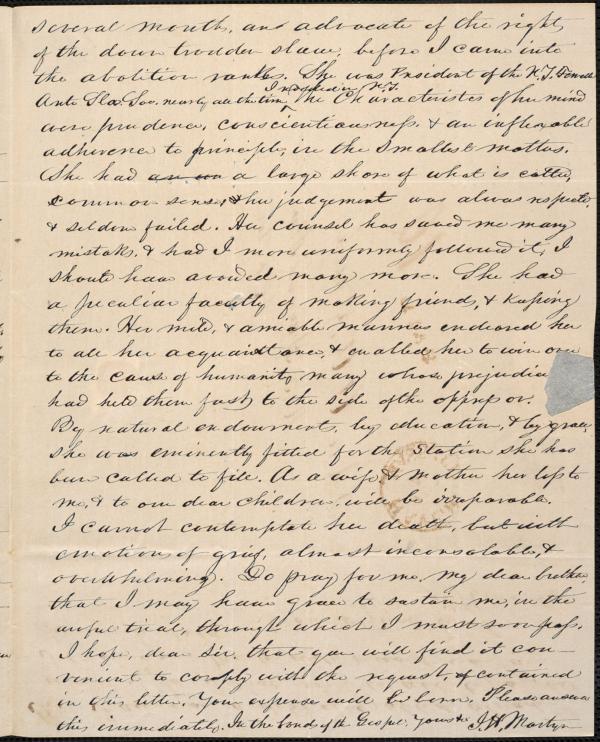 several months, an advocate of the rights
of the down trodden slave, before I came into
the abolition ranks. She was President of the N.Y. Female
Ante Sla. Soc. nearly all the time I resided in N.Y. The Characteristics of her mind
were prudence, conscientiousness, & an inflexable
adherence to principle, in the smallest matters.
She had an un a large share of what is called,
common sense, & her judgement was always respected,
& seldom failed. Her counsel has saved me many
mistakes, & had I more uniformly followed it, I
should have avoided many more. She had
a peculiar facultly of making friends, & keeping
them. Her mild, & amiable manners endeared her
to all her acquaintance, & enabled her to win over
to the cause of humanity many whose prejudice
had held them fast to the side of the oppressor.
By natural endowments, by education, & by grace,
she was eminently fitted for the Station she has
been called to fill. As a wife & mother her loss to
me, & to our dear children, will be irreparable.
I cannot contemplate her death, but with
emotion of grief, almost inconsolable, &
overwhelming. Do pray for me, my dear brother,
that I may have grace to sustain me, in the
awful trial, through which I must soon pass.
I hope, dear Sir, that you will find it con-
venient to comply with the request, contained
in this letter. Your expense will be born. Please answer
this immediately. In the bonds of the Gospel. Yours &c J. H. Martyn